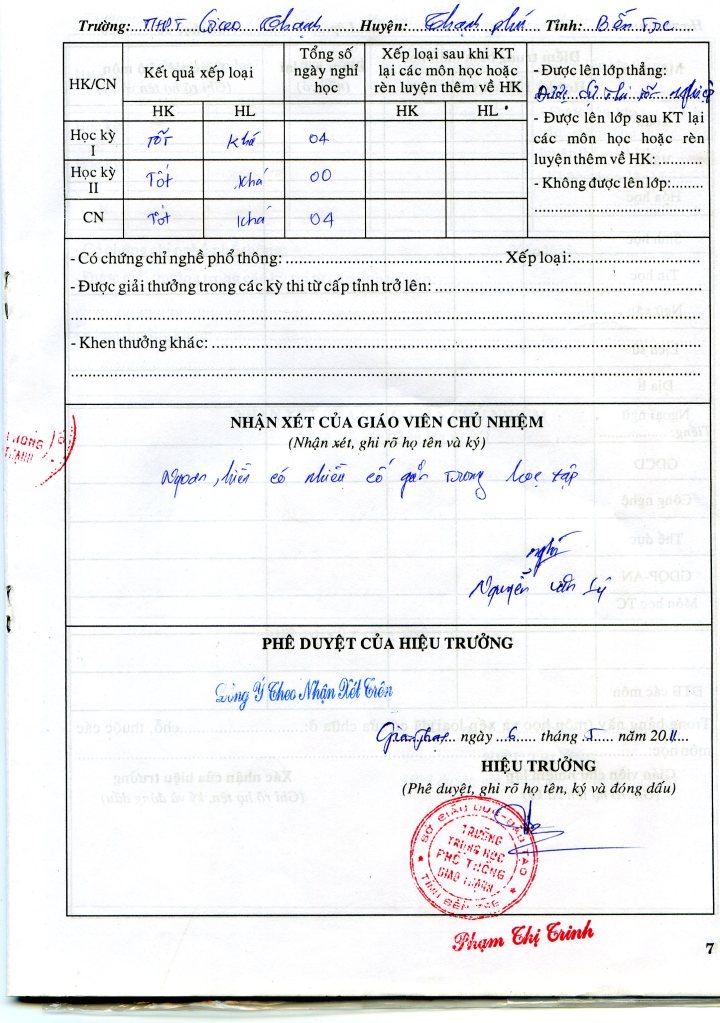 Trường: THPT Giao Thạnh Huyện: Thạnh phú Tỉnh: Bến Tre
HK/CN Kết quả xếp loại Tổng số ngày nghỉ học Xếp loại sau khi KT lại các môn học hoặc rèn luyện thêm về HK
HK HL HK HL
Học kỳ I Tốt Khá 04
Học kỳ II Tốt Khá 00
CN Tốt Khá 04
- Được lên lớp thẳng:
Được dự thi tốt nghiệp
- Được lên lớp sau KT lại
các môn học hoặc rèn
luyện thêm về HK: ...........
- Không được lên lớp:........
- Có chứng chỉ nghề phổ thông: ........................ Xếp loại:........................
- Được giải thưởng trong các kỳ thi từ cấp tỉnh trở lên: ........................
- Khen thưởng khác: ........................
NHẬN XÉT CỦA GIÁO VIÊN CHỦ NHIỆM
(Nhận xét, ghi rõ họ tên và ký)
Ngoan, hiền có nhiều cố gắn trong học tập
Nguyễn Văn Lý
PHÊ DUYỆT CỦA HIỆU TRƯỞNG
Đồng Ý Theo Nhận Xét Trên
Giao Thạnh ngày 6 tháng 5 năm 2011
HIỆU TRƯỞNG
(Phê duyệt, ghi rõ họ tên, ký và đóng dấu)
SỞ GIÁO DỤC - ĐÀO TẠO
TRƯỜNG
TRUNG HỌC
PHỔ THÔNG
GIAO THẠNH
TỈNH BẾN TRE
Phạm Thị Trinh
7